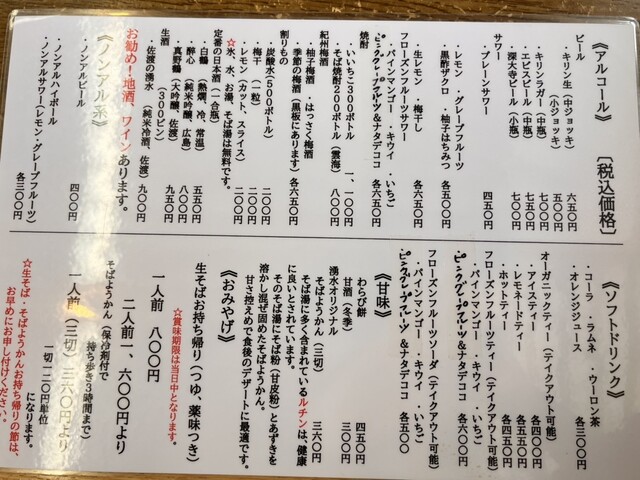 《アルコール》 〔税込価格〕
ビール
・キリン生(中ジョッキ) 六五〇円
(小ジョッキ) 五〇〇円
・キリンラガー(中瓶) 七〇〇円
・エビスビール(中瓶) 七五〇円
・深大寺ビール(小瓶) 七〇〇円
サワー
・プレーンサワー 四五〇円
・レモン ・グレープフルーツ
・黒酢ザクロ ・柚子はちみつ
・生レモン ・梅干し 各五五〇円
フローズンフルーツサワー
・パインマンゴー ・キウイ ・いちご
・ピンクグレープフルーツ&ナタデココ 各六五〇円
焼酎
・いいちこ300ボトル 一、一〇〇円
・そば焼酎200ボトル(雲海) 八〇〇円
紀州梅酒
・柚子梅酒 ・はっさく梅酒
・季節の梅酒(黒板にあります) 各六五〇円
割りもの
・炭酸水(500ボトル) 二〇〇円
・梅干(一粒) 一〇〇円
・レモン(カット、スライス) 二〇〇円
☆氷、水、お湯、そば湯は無料です。
定番の日本酒(一合瓶)
・白鶴(熱燗、冷、常温) 五五〇円
・酔心(純米吟醸、広島) 八五〇円
・真野鶴(大吟醸、佐渡) 九五〇円
生酒(300ビン)
・佐渡の湧水(純米冷酒、佐渡) 九〇〇円
お勧め!地酒、ワインあります。
《ノンアル系》
・ノンアルビール 四〇〇円
・ノンアルハイボール
・ノンアルサワー(レモン・グレープフルーツ) 各三〇〇円
《ソフトドリンク》
・コーラ ・ラムネ ・ウーロン茶
・オレンジジュース 各三〇〇円
オーガニックティー(テイクアウト可能)
・アイスティー 各四〇〇円
・レモネードティー 各五五〇円
・ホットティー 各四五〇円
フローズンフルーツティー(テイクアウト可能)
・パインマンゴー ・キウイ ・いちご
・ピンクグレープフルーツ&ナタデココ 各六〇〇円
フローズンフルーツソーダ(テイクアウト可能)
・パインマンゴー ・キウイ ・いちご
・ピンクグレープフルーツ&ナタデココ 各五〇〇
《甘味》
わらび餅 四五〇円
甘酒(冬季) 三〇〇円
湧水オリジナル
そばようかん(三切) 三六〇円
そばに多く含まれているルチンは、健康
に良いとされています。
そのそばにそば粉(甘皮粉)とあずきを
溶かし混ぜ固めたそばようかん。
甘さ控えめで食後のデザートに最適です。
《おみやげ》
生そばお持ち帰り(つゆ、薬味つき)
☆賞味期限は当日中となります。
一人前 八〇〇円
二人前一、六〇〇円より
そばようかん(保冷剤付で
持ち歩き3時間まで)
一人前(三切)三六〇円より
一切一二〇円単位
になります。
☆生そば・そばようかんお持ち帰りの節は、
お早めにお申し付けください。